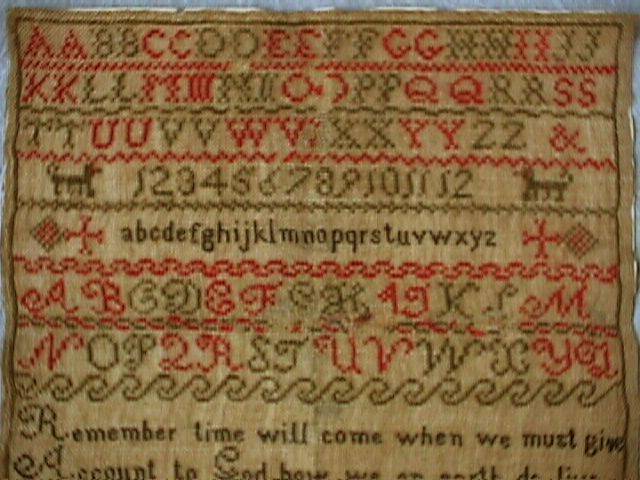 AABBCCDDEEFFGGHHIIJJ
KKLLMMNNOOPPQQRRSS
TTUUVVWWXXYYZZ &
1 2 3 4 5 6 7 8 9 10 11 12
abcdefghijklmnopqrstuvwxyz
ABCDEFGHIJKLM
NOPQRSTUVWXYZ
Remember time will come when we must give
Account to God how we on earth do live